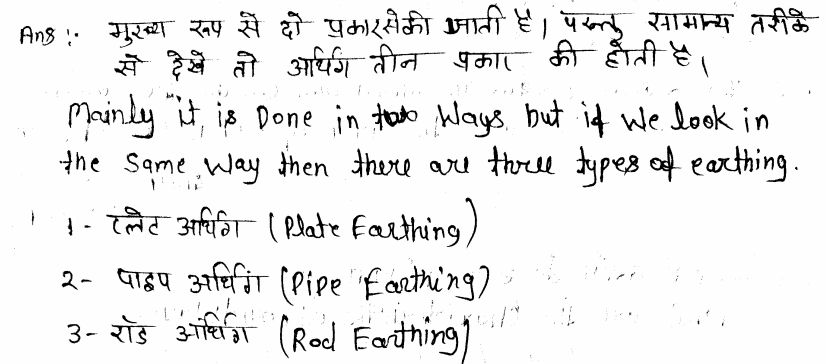 Ans :- मुख्य रूप से दो प्रकार से की जाती है। परन्तु सामान्य तरीके
से देखे तो अर्थिंग तीन प्रकार की होती है।
Mainly it is Done in two Ways but if We look in
the Same Way then there are three types of earthing.
1- प्लेट अर्थिंग (Plate Earthing)
2- पाइप अर्थिंग (Pipe Earthing)
3- रॉड अर्थिंग (Rod Earthing)